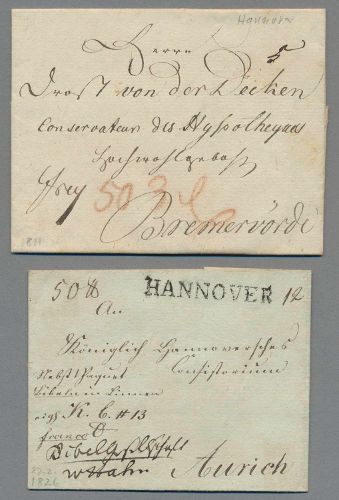 Hannover
Herrn
5
Drost von der Decken
Conservateur des Hypotheques
Hochwohlgeb
frey
50
Bremervörde
1811
50 ℔
HANNOVER
12
An
Königlich Hannoversches
Consistorium
Nebst 1 Paquet
Bibeln in Linnen
sign K. C. # 13
franco
Bibelgesellschaft
Aurich
1826